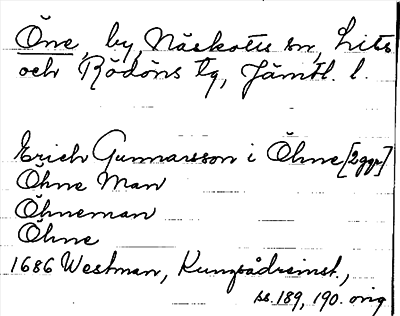 Öne, by, Näskotts sn, Lits
och Rödöns tg, Jämtl. l.
Erich Gunnarsson i Öhne [2ggr]
Öhne Man
Öhneman
Öhne
1686 Westman, Kungsådreinst.,
ss. 189, 190. orig